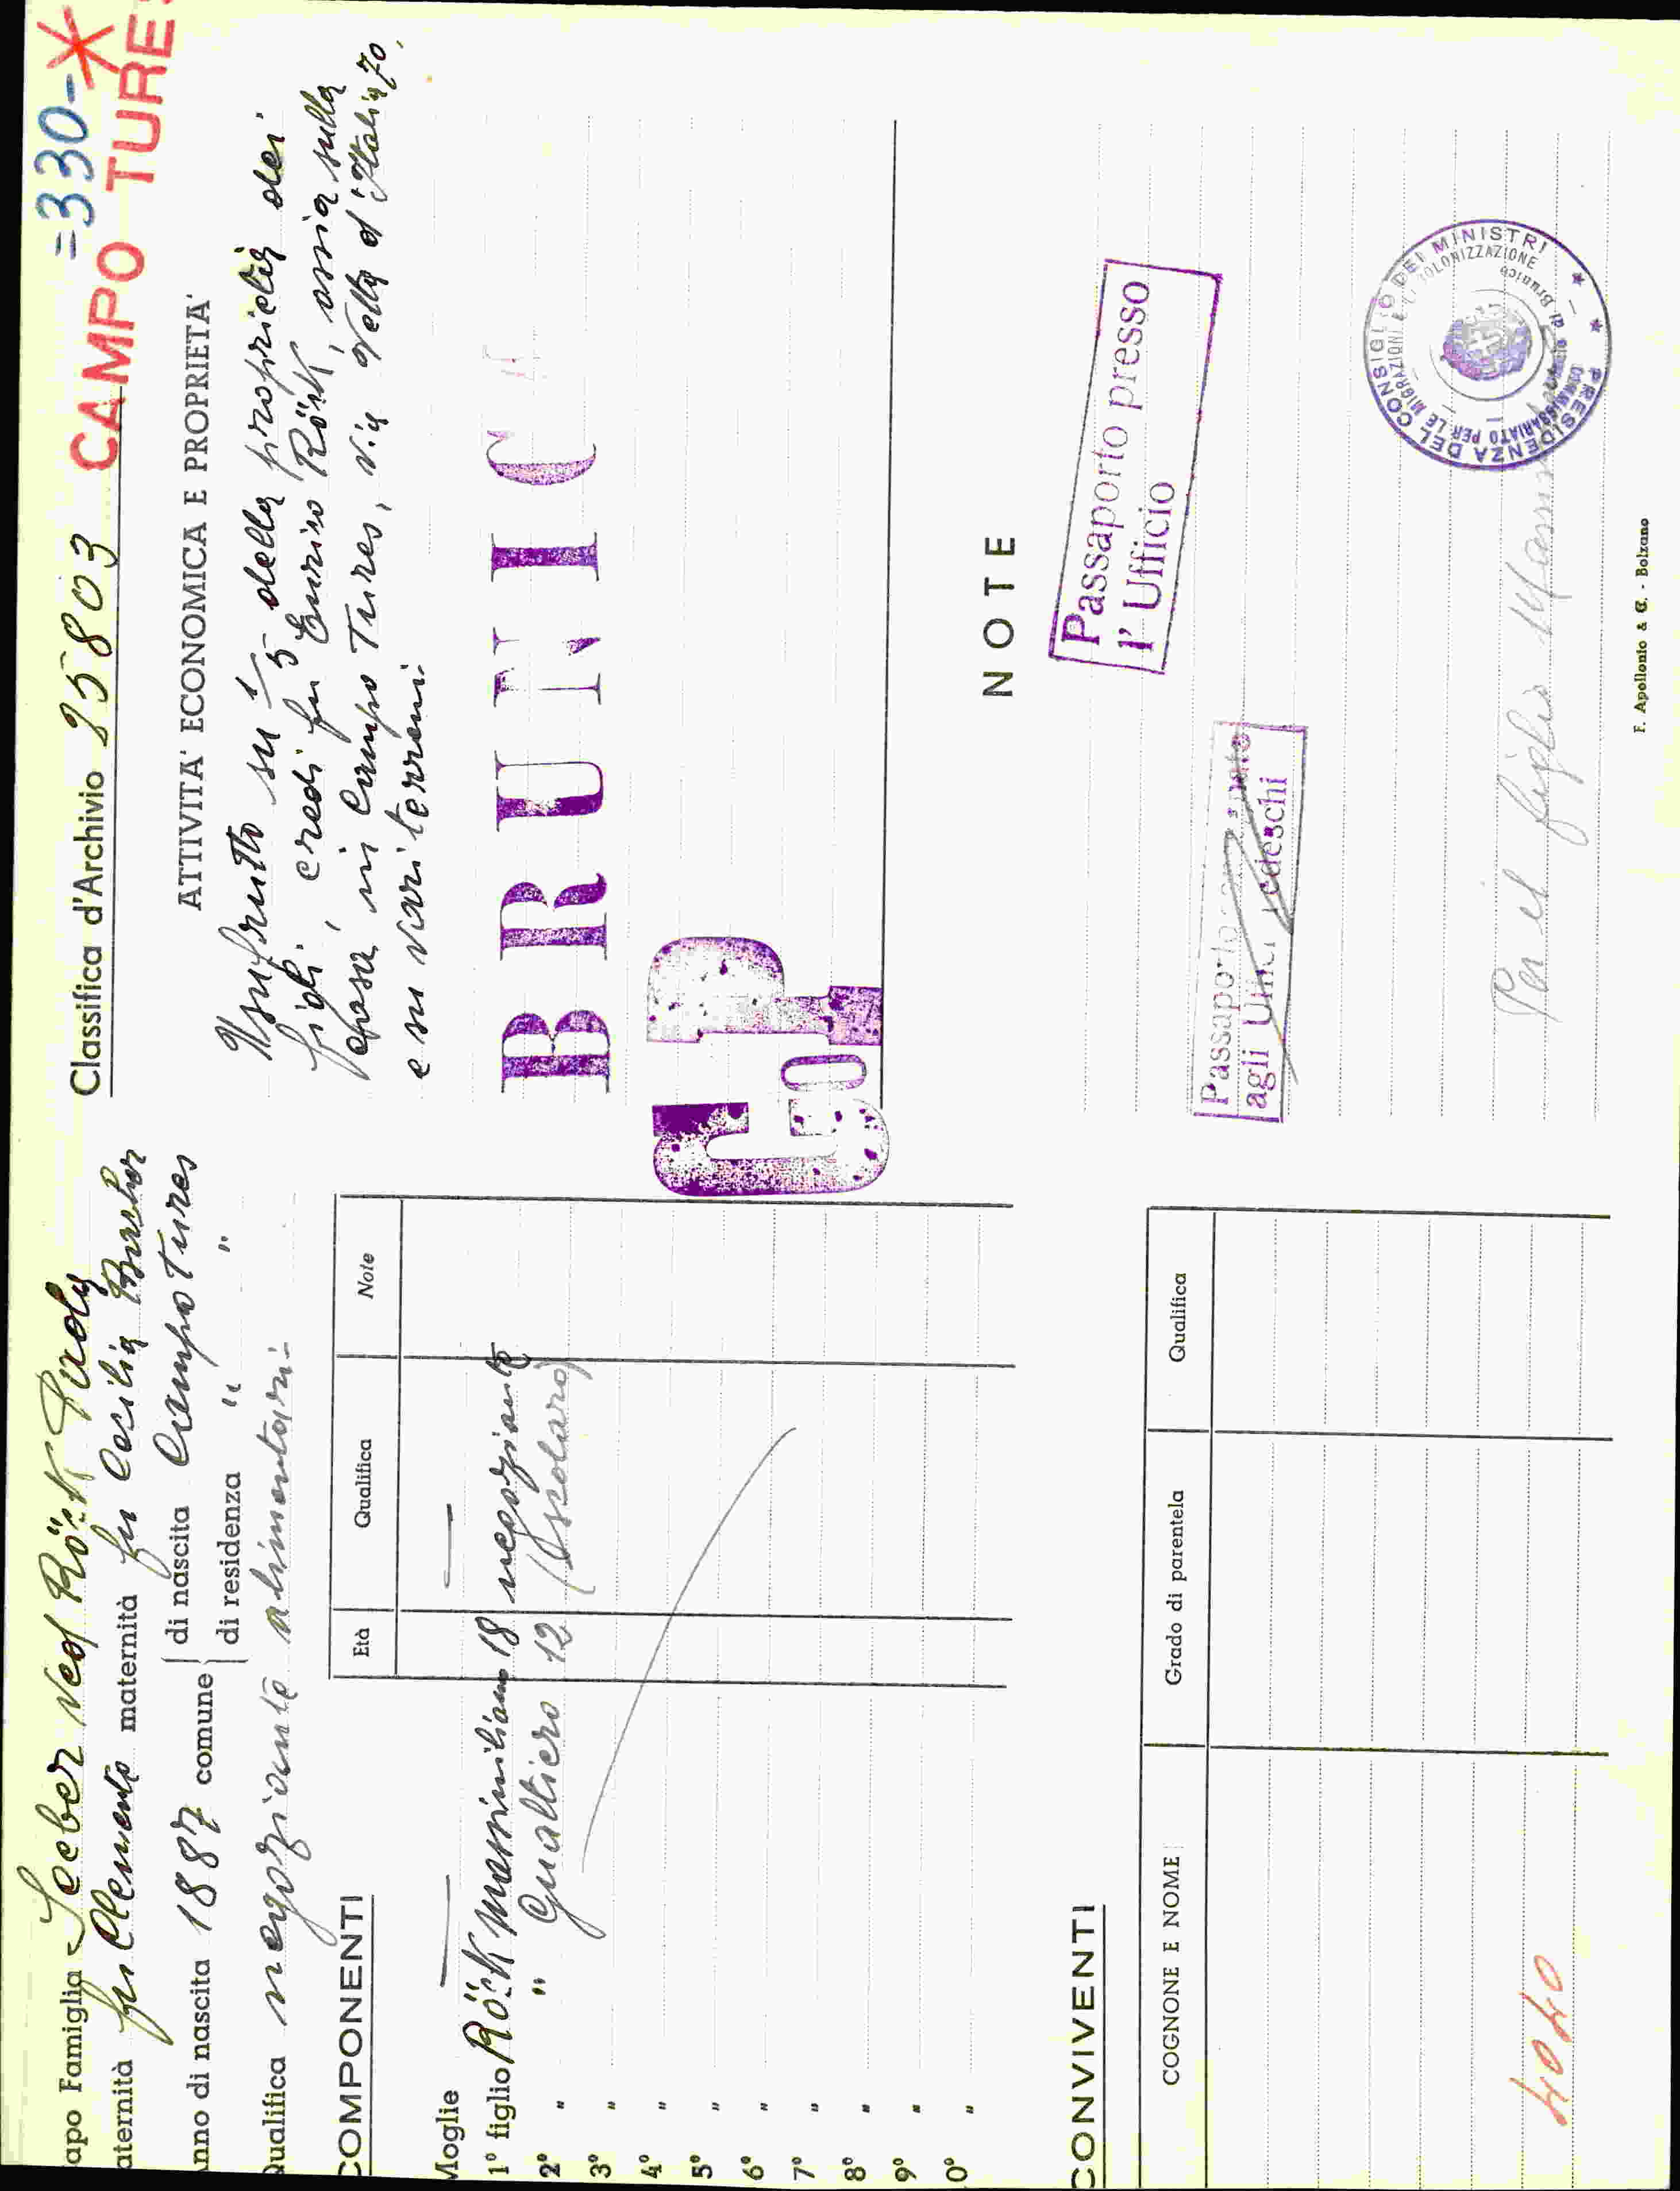 =330-*
Classifica d'Archivio 25803 CAMPO TURES
apo Famiglia Seeber ved. Röck Paola
aternità fu Clemente maternità fu Cecilia
nno di nascita 1887 comune di nascita Campo Tures
di residenza " "
ualifica negoziante alimentari-
COMPONENTI
Età Qualifica Note
Moglie — —
1° figlio Röck Massimiliano 18 negoziante
2° " " Gualtiero 12 (scolaro)
3° "
4° "
5° "
6° "
7° "
8° "
9° "
0° "
CONVIVENTI
COGNONE E NOME Grado di parentela Qualifica
4040
ATTIVITA' ECONOMICA E PROPRIETA'
Usufrutto su 1/5 della proprietà dei
figli eredi fu Enrico Röck, ossia sulla
casa in Campo Tures, via Nella d'Italia 70,
e su vari terreni.
BRUNIC
Co P
NOTE
Passaporto presso
l' Ufficio
Passaporto
agli Uffici tedeschi
PRESIDENZA DEL CONSIGLIO DEI MINISTRI
COMMISSARIATO PER LE MIGRAZIONI E COLONIZZAZIONE
di Brunico
Per il figlio
F. Apollonio & C. - Bolzano